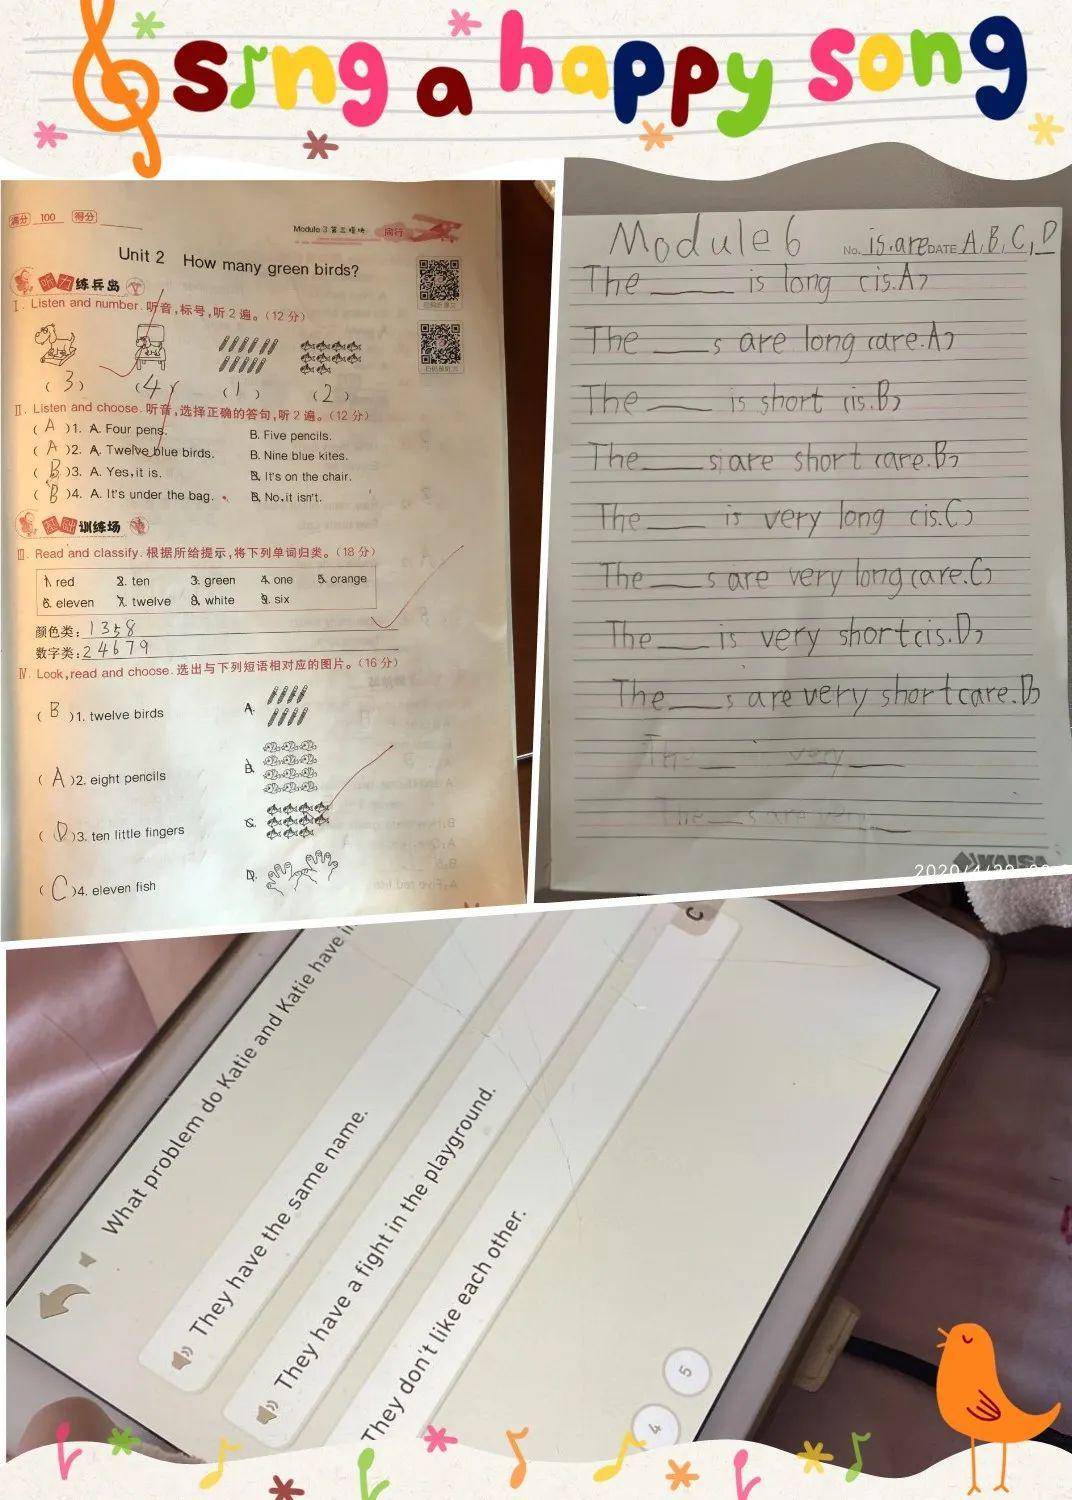 sing a happy song
满分 100 得分
Module 3 第三模块
Unit 2 How many green birds?
听力 练兵岛
Ⅰ. Listen and number. 听音,标号,听2遍。(12分)
( 3 ) ( 4 ) ( 1 ) ( 2 )
Ⅱ. Listen and choose. 听音,选择正确的答句,听2遍。(12分)
( A )1. A. Four pens. B. Five pencils.
( A )2. A. Twelve blue birds. B. Nine blue kites.
( B )3. A. Yes, it is. B. It's on the chair.
( B )4. A. It's under the bag. B. No, it isn't.
基础 训练场
Ⅲ. Read and classify. 根据所给提示,将下列单词归类。(18分)
1. red 2. ten 3. green 4. one 5. orange
6. eleven 7. twelve 8. white 9. six
颜色类: 1358
数字类: 24679
Ⅳ. Look, read and choose. 选出与下列短语相对应的图片。(16分)
( B )1. twelve birds A.
( A )2. eight pencils B.
( D )3. ten little fingers C.
( C )4. eleven fish D.
Module 6 No. is.are DATE A,B,C,D
The ____ is long (is.A)
The ____s are long (are.A)
The ____ is short (is.B)
The ____s are short (are.B)
The ____ is very long (is.C)
The ____s are very long (are.C)
The ____ is very short (is.D)
The ____s are very short (are.D)
The ____ very ____
The ____s are very ____
KAISA
What problem do Katie and Katie have
They have the same name.
They have a fight in the playground.
They don't like each other.
C
4 5